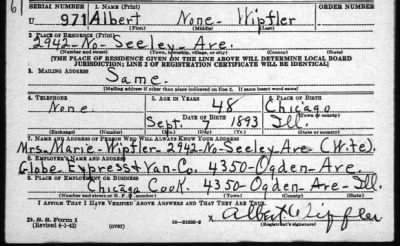 SERIAL NUMBER 1. NAME (Print) ORDER NUMBER
U 971 Albert None - Wipfler
(First) (Middle) (Last)
2. PLACE OF RESIDENCE (Print)
2942-No-Seeley-Ave.
(Number and street) (Town, township, village, or city) (County) (State)
[THE PLACE OF RESIDENCE GIVEN ON THE LINE ABOVE WILL DETERMINE LOCAL BOARD
JURISDICTION; LINE 2 OF REGISTRATION CERTIFICATE WILL BE IDENTICAL]
3. MAILING ADDRESS
Same.
[Mailing address if other than place indicated on line 2. If same insert word same]
4. TELEPHONE 5. AGE IN YEARS 6. PLACE OF BIRTH
None. 48 Chicago
DATE OF BIRTH (Town or county)
Sept. 7 1893 Ill.
(Exchange) (Number) (Mo.) (Day) (Yr.) (State or country)
7. NAME AND ADDRESS OF PERSON WHO WILL ALWAYS KNOW YOUR ADDRESS
Mrs-Marie-Wipfler-2942-No-Seeley-Ave (Wife).
8. EMPLOYER'S NAME AND ADDRESS
Globe-Express & Van-Co. 4350-Ogden-Ave.
9. PLACE OF EMPLOYMENT OR BUSINESS
Chicago Cook. 4350-Ogden-Ave-Ill.
(Number and street or R. F. D. number) (Town) (County) (State)
I AFFIRM THAT I HAVE VERIFIED ABOVE ANSWERS AND THAT THEY ARE TRUE.
D. S. S. Form 1
(Revised 4-1-42) (over) Albert Wipfler
(Registrant's signature)